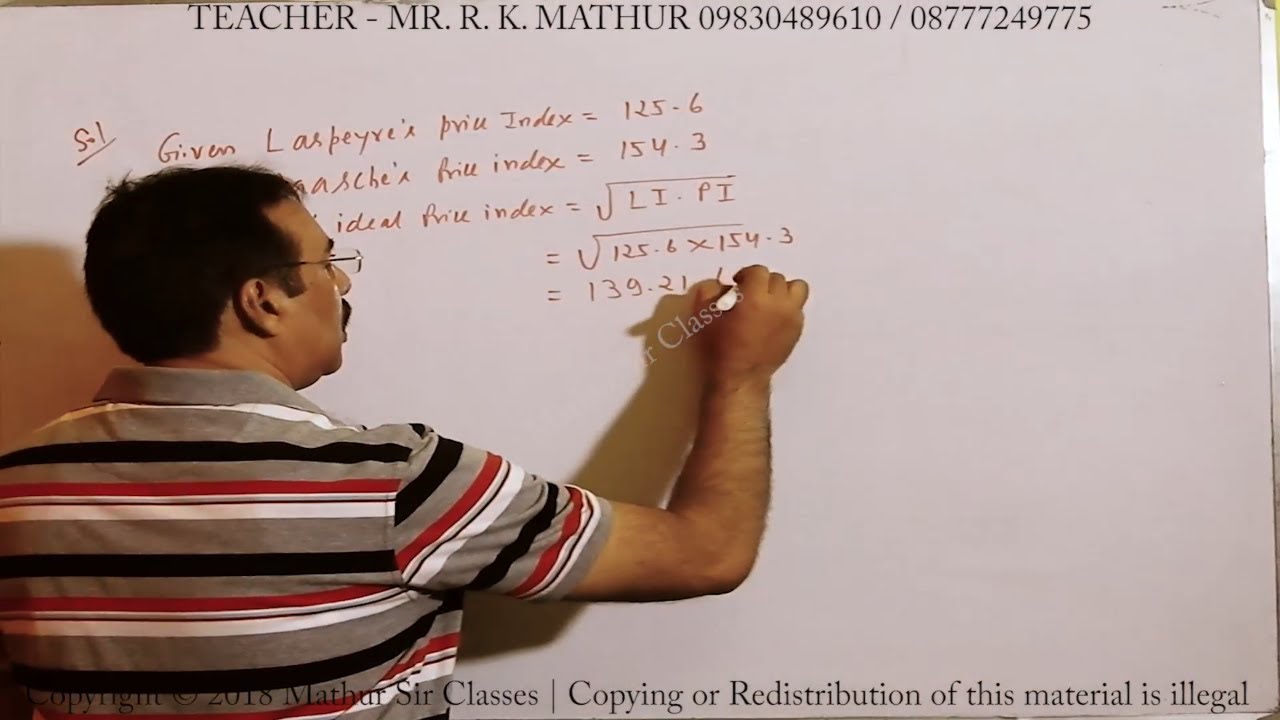 TEACHER - MR. R. K. MATHUR 09830489610 / 08777249775
Sol Given Laspeyre's price Index = 125.6
aasche's Price index = 154.3
ideal Price index = √LI . PI
= √125.6 × 154.3
= 139.21
sir Classes
Copyright © 2018 Mathur Sir Classes | Copying or Redistribution of this material is illegal